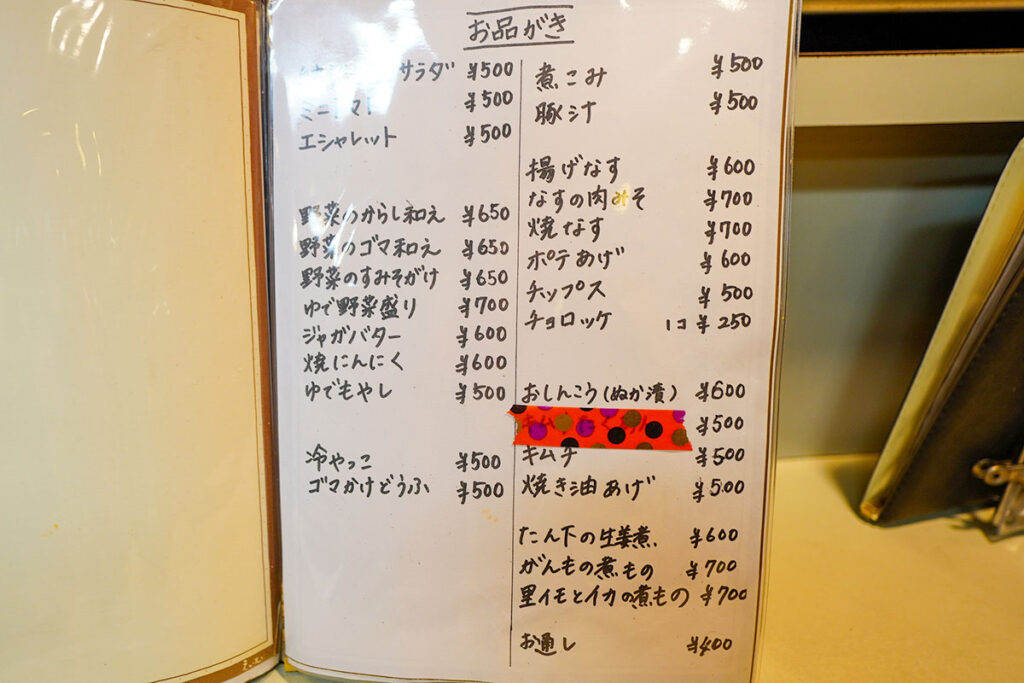 お品がき
サラダ ¥500
ミニトマト ¥500
エシャレット ¥500
野菜のからし和え ¥650
野菜のゴマ和え ¥650
野菜のすみそがけ ¥650
ゆで野菜盛り ¥700
ジャガバター ¥600
焼にんにく ¥600
ゆでもやし ¥500
冷やっこ ¥500
ゴマかけどうふ ¥500
煮こみ ¥500
豚汁 ¥500
揚げなす ¥600
なすの肉みそ ¥700
焼なす ¥700
ポテあげ ¥600
チップス ¥500
チョロッケ 1コ ¥250
おしんこう(ぬか漬) ¥600
¥500
キムチ ¥500
焼き油あげ ¥500
たん下の生姜煮 ¥600
がんもの煮もの ¥700
里イモとイカの煮もの ¥700
お通し ¥400